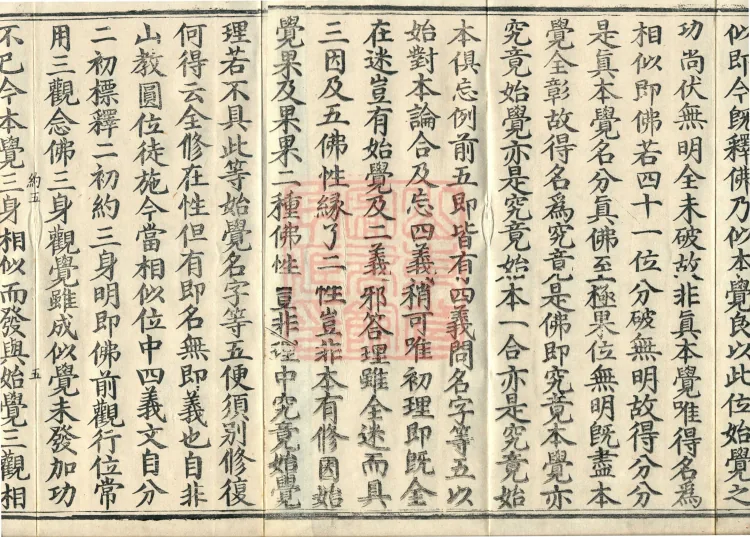 似即今既釋佛乃似本覺良以此位始覺之
功尚伏無明全未破故非眞本覺唯得名爲
相似即佛若四十一位分破無明故得分分
是眞本覺名分眞佛至極果位無明既盡本
覺全彰故得名爲究竟是佛即究竟本覺亦
究竟始覺亦是究竟始本一合亦是究竟始
本俱忘例前五即皆有四義問名字等五以
始對本論合及忘四義稍可唯初理即既全
在迷豈有始覺及二義邪答理雖全迷而具
三因及五佛性緣了二性豈非本有修因始
覺果及果果二種佛性豈非理中究竟始覺
理若不具此等始覺名字等五便須別修復
何得云全修在性但有即名無即義也自非
山教圓位徒施今當相似位中四義文自分
二初標釋二初約三身明即佛前觀行位常
用三觀念佛三身觀覺雖成似覺未發加功
約五
五
不已今本覺三身相似而發與始覺三觀相